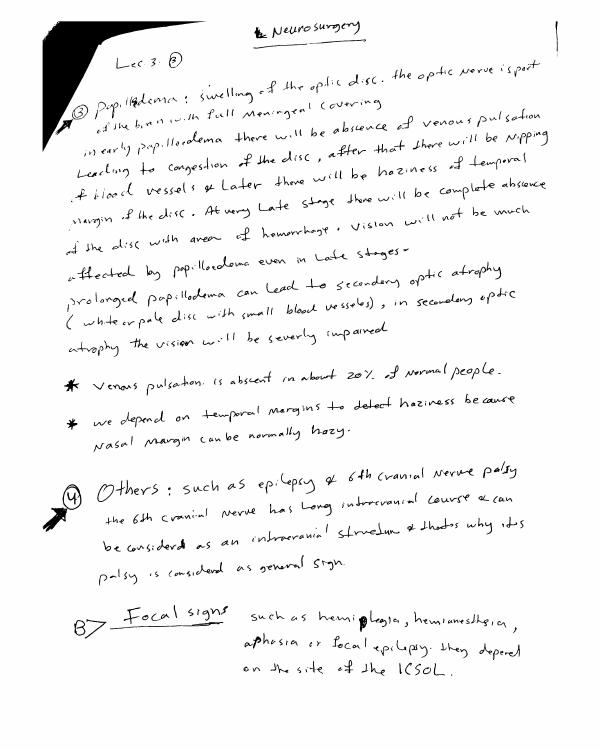 Neurosurgery
Lec 3. ③
③ papilledema: swelling of the optic disc. the optic nerve is part
of the brain with full meningeal covering
in early papilloedema there will be abscence of venous pulsation
Leading to congestion of the disc, after that there will be Nipping
of blood vessels & Later there will be haziness of temporal
margin of the disc. At very Late stage there will be complete abscence
of the disc with area of hemorrhage. Vision will not be much
affected by papilloedoma even in late stages-
prolonged papilledema can Lead to secondery optic atrophy
(white or pale disc with small blood vesseles), in secondery optic
atrophy the vision will be severly impaired
* Venous pulsation is abscent in about 20% of Normal people.
* we depend on temporal margins to detect haziness because
Nasal Margin can be normally hazy.
④ Others: such as epilepsy & 6th cranial Nerve palsy
the 6th cranial Nerve has Long intracranial course & can
be considerd as an intracranial structure & thats why its
palsy is considerd as general sign.
B> Focal signs such as hemiplegia, hemianesthesia,
aphasia or focal epilepsy. they depend
on the site of the ICSOL.